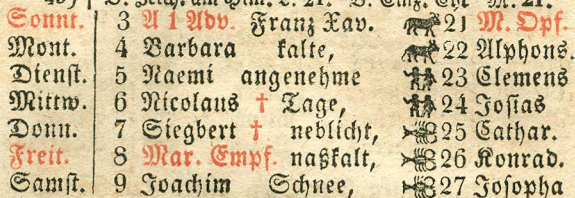 Sonnt. 3 A 1 Adv. Franz Xav. 21 M. Opf.
Mont. 4 Barbara kalte, 22 Alphons.
Dienst. 5 Naemi angenehme 23 Clemens
Mittw. 6 Nicolaus † Tage, 24 Josias
Donn. 7 Siegbert † neblicht, 25 Cathar.
Freit. 8 Mar. Empf. naßkalt, 26 Konrad.
Samst. 9 Joachim Schnee, 27 Josopha